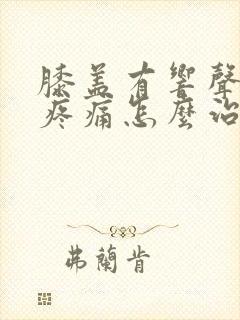 膝盖有響聲
疼痛怎麼治
弗蘭肯